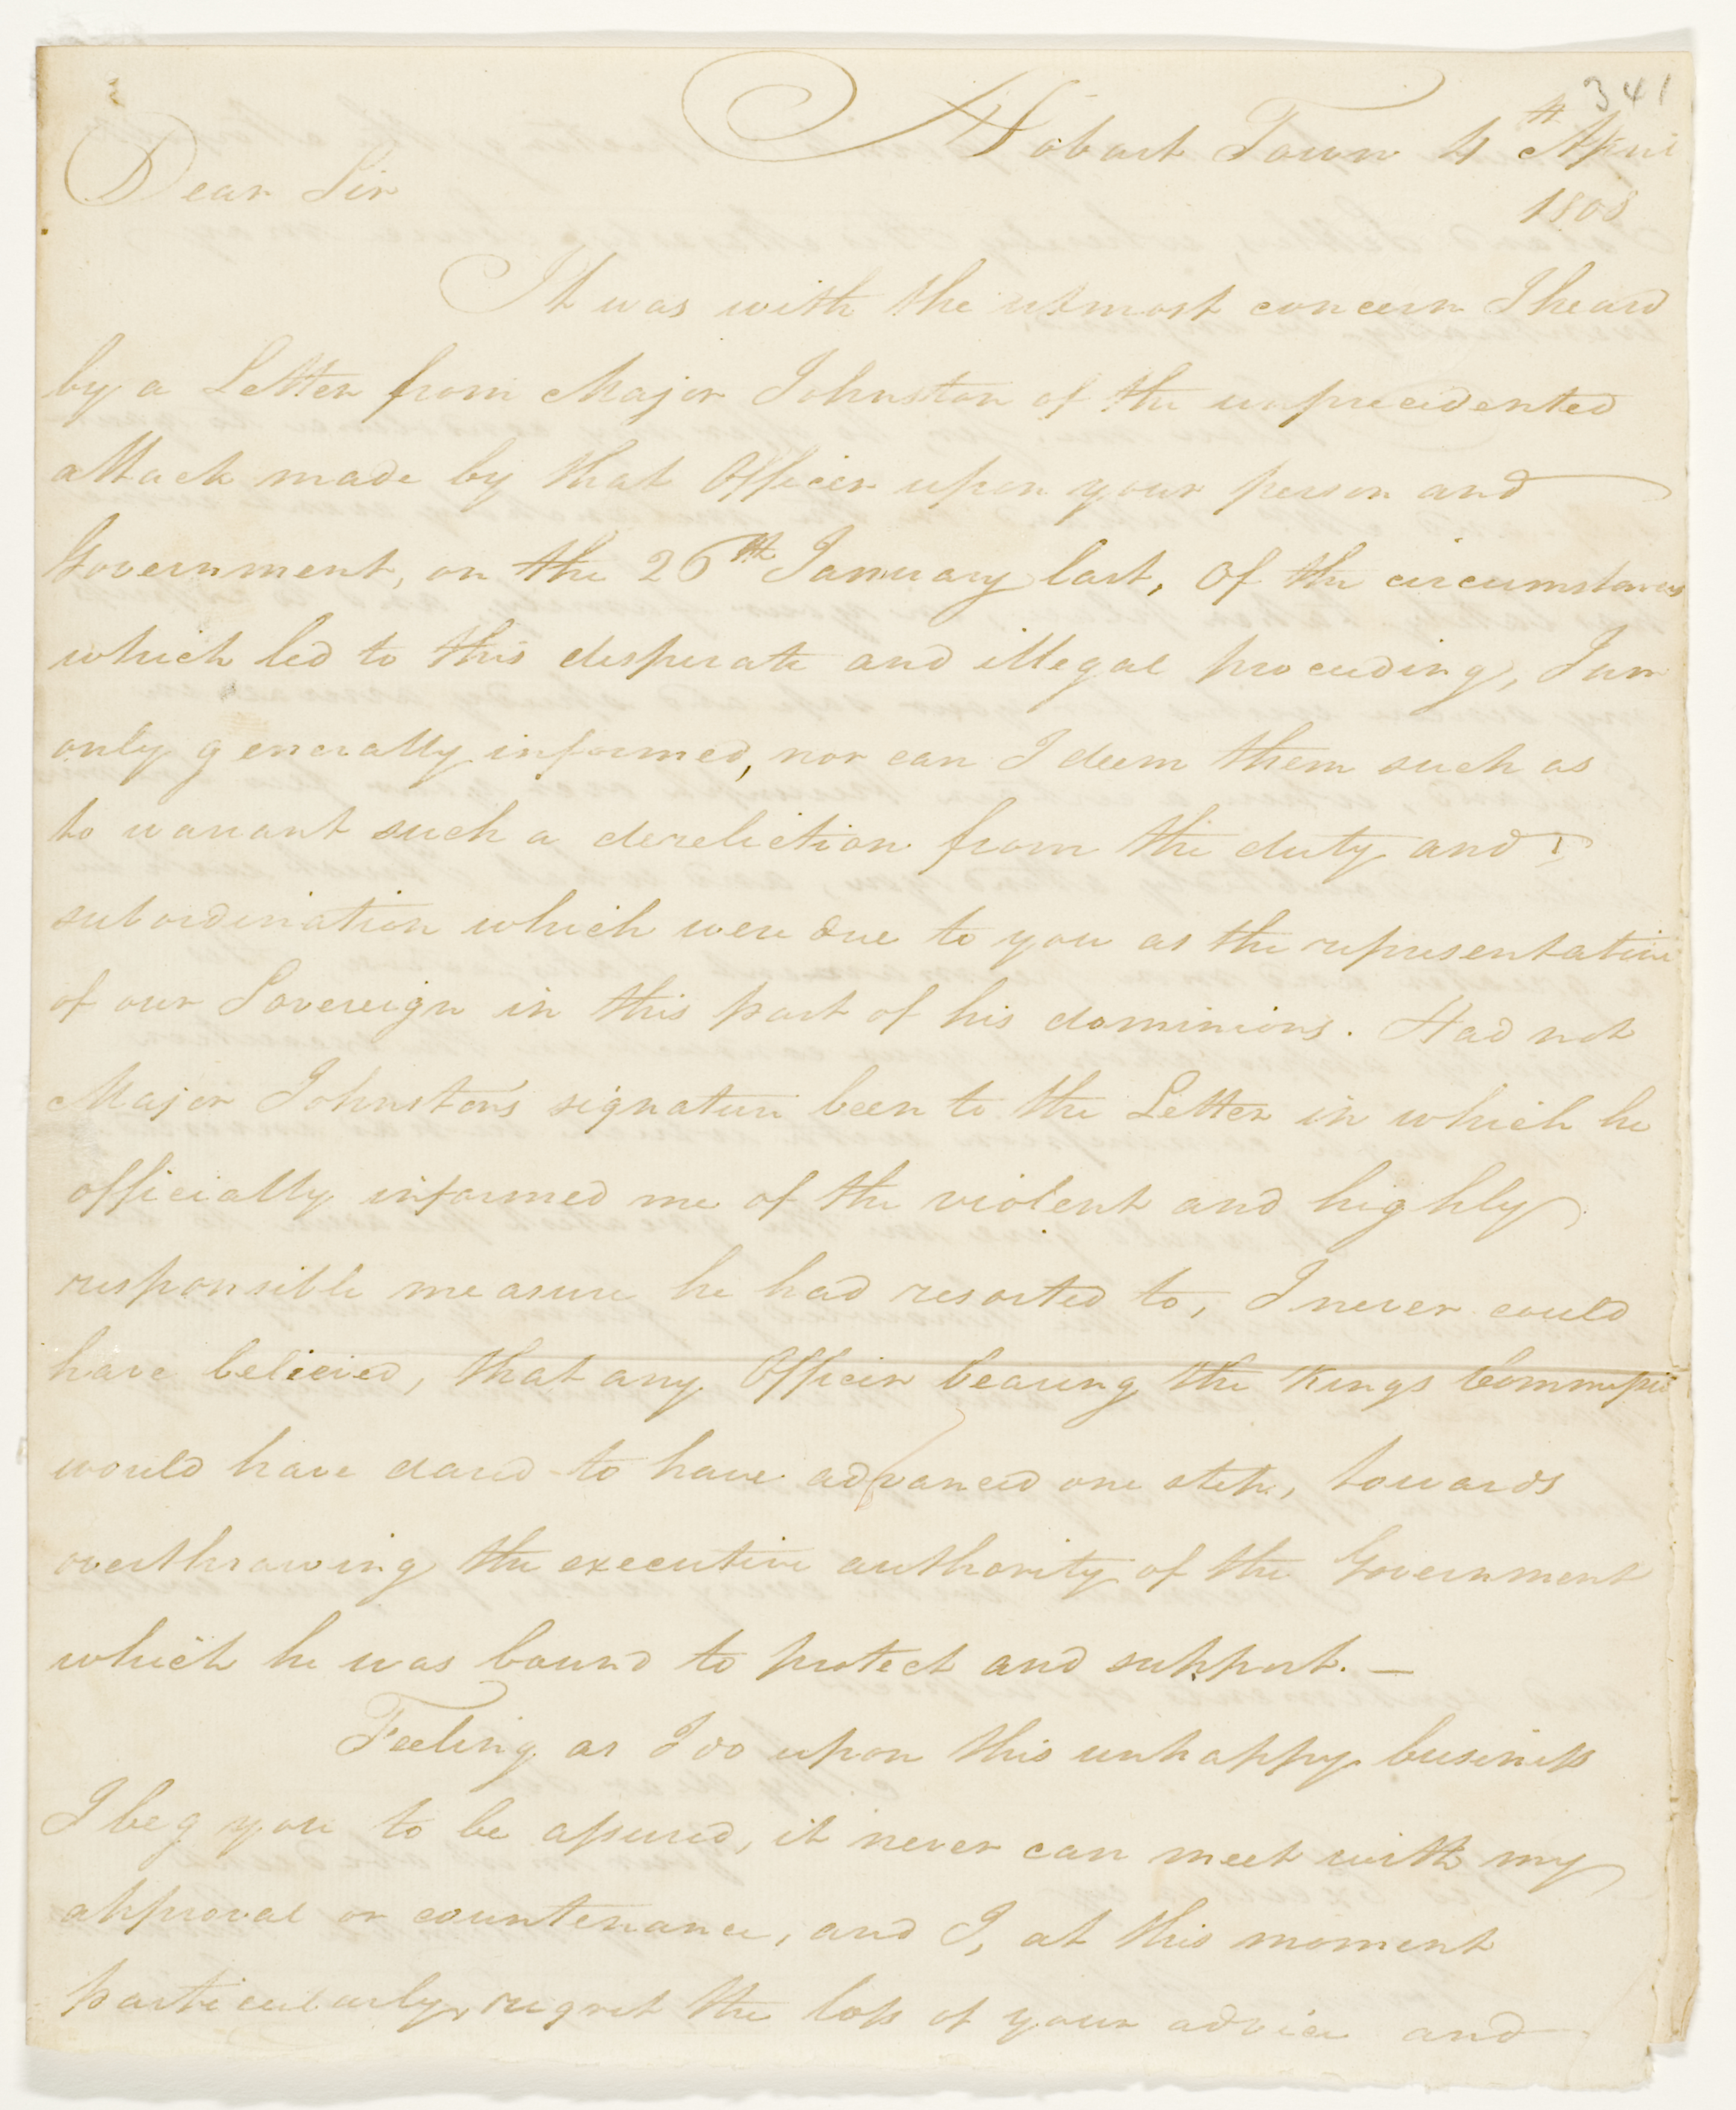 341
Hobart Town 4th April
1808
Dear Sir
It was with the utmost concern I heard
by a Letter from Major Johnston of the unprecedented
attack made by that Officer upon your person and
Government, on the 26th January last, Of the circumstances
which led to this desperate and illegal proceeding, I am
only generally informed, nor can I deem them such as
to warrant such a dereliction from the duty and
subordination which were due to you as the representative
of our Sovereign in this part of his dominions. Had not
Major Johnston's signature been to the Letter in which he
officially informed me of the violent and highly
responsible measure he had resorted to, I never could
have believed, that any Officer bearing the Kings Commissio
would have dared to have advanced one step, towards
overthrowing the executive authority of the Government
which he was bound to protect and support. —
Feeling as I do upon this unhappy business
I beg you to be assured, it never can meet with my
approval or countenance, and I, at this moment
particularly, regret the loss of your advice and